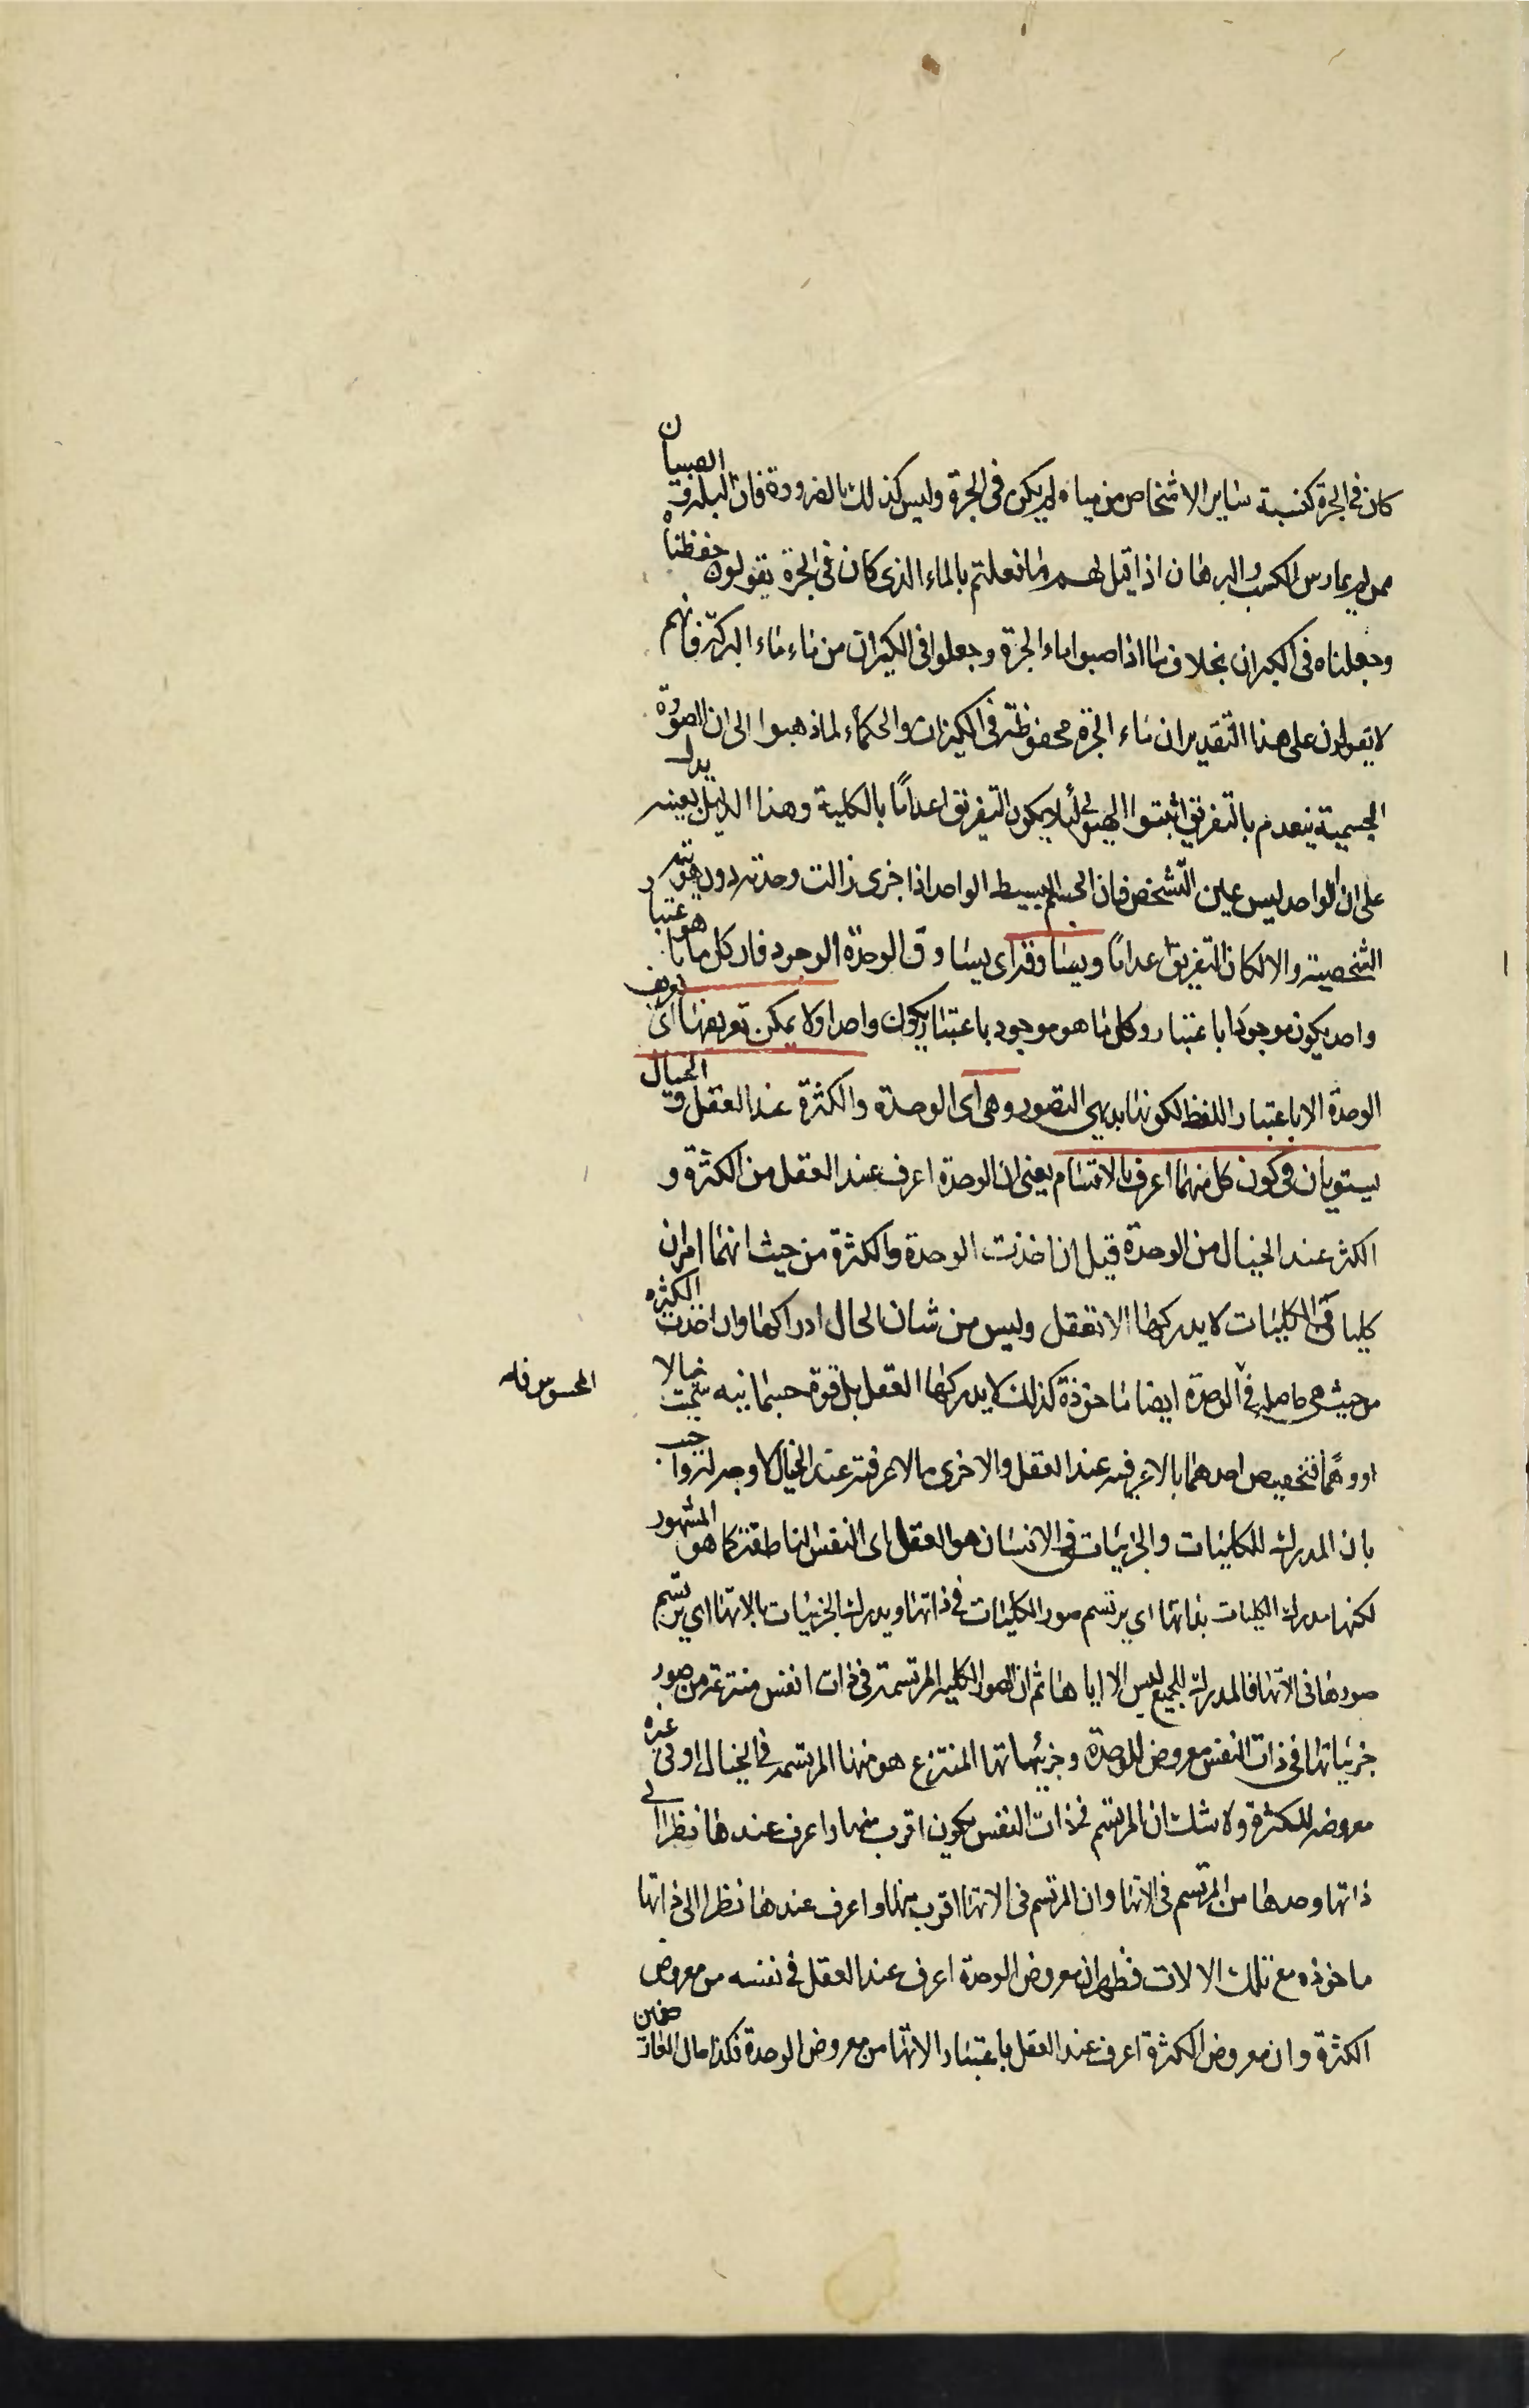 كان فى الجرة كنسبة ساير الاشخاص من مياه لم يكن فى الجرة وليس كذلك بالضرورة فان البله والصبيان
ممن لم يمارس الكسب والبرهان اذا قيل لهم ما فعلتم بالماء الذى كان فى الجرة يقولون حفظناه
وجعلناه فى الكيزان بخلاف ما اذا صبوا ماء الجرة وجعلوا فى الكيزان من ماء البركة فانهم
لا يقولون على هذا التقدير ان ماء الجرة محفوظة فى الكيزان والحكماء لما ذهبوا الى ان الصورة
الجسمية ينعدم بالتفريق اثبتوا الهيولى لئلا يكون التفريق اعداما بالكلية وهذا الدليل بعينه يدل
على ان الواحد ليس عين التشخص فان الجسم البسيط الواحد اذا جزى زالت وحدته دون هويته
الشخصية والا لكان التفريق اعداما ويساوقه اى يساوق الوحدة الوجود فان كل ما هو باعتبار
واحد يكون موجودا باعتبار وكل ما هو موجود باعتبار يكون واحدا ولا يمكن تعريفها اى تعريف
الوحدة الا باعتبار اللفظ لكونها بديهى التصور وهى اى الوحدة والكثرة عند العقل والخيال
يستويان فى كون كل منهما اعرف بالاقتسام يعنى ان الوحدة اعرف عند العقل من الكثرة و
الكثرة عند الخيال من الوحدة قيل ان اخذت الوحدة والكثرة من حيث انهما امران
كليان فالكليات لا يدركها الا العقل وليس من شان الخيال ادراكها وان اخذت الكثرة
من حيث هى حاصلة فى المحسوس فالوحدة ايضا ماخوذة كذلك لا يدركها العقل بل قوة جسمانيه سميت خيالا
او وهما فتخصيص احدهما بالاعرفيه عند العقل والاخرى بالاعرفية عند الخيال لا وجه له واجيب
بان المدرك للكليات والجزئيات فى الانسان هو العقل اى النفس الناطقة كما هو المشهور
لكنها مدرك الكليات بذاتها اى يرتسم صور الكليات فى ذاتها ويدرك الجزئيات بالاتها اى يرتسم
صورها فى الاتها فالمدرك للجميع ليس الا اياها ثم ان الصور الكليه المرتسمة فى ذات النفس منتزعة من صور
جزئياتها فى ذات النفس معروض للوحدة وجزئياتها المنتزع هو منها المرتسمة فى الخيال او فى غيره
معروضه للكثرة ولا شك ان المرتسم فى ذات النفس يكون اقرب منها واعرف عندها نظرا الى
ذاتها وحدها من المرتسم فى الاتها وان المرتسم فى الاتها اقرب منها واعرف عندها نظرا الى ذاتها
ماخوذه مع تلك الالات فظهر ان معروض الوحدة اعرف عند العقل فى نفسه من معروض
الكثرة وان معروض الكثرة اعرف عند العقل باعتبار الاتها من معروض الوحدة فكذا حال العارضين